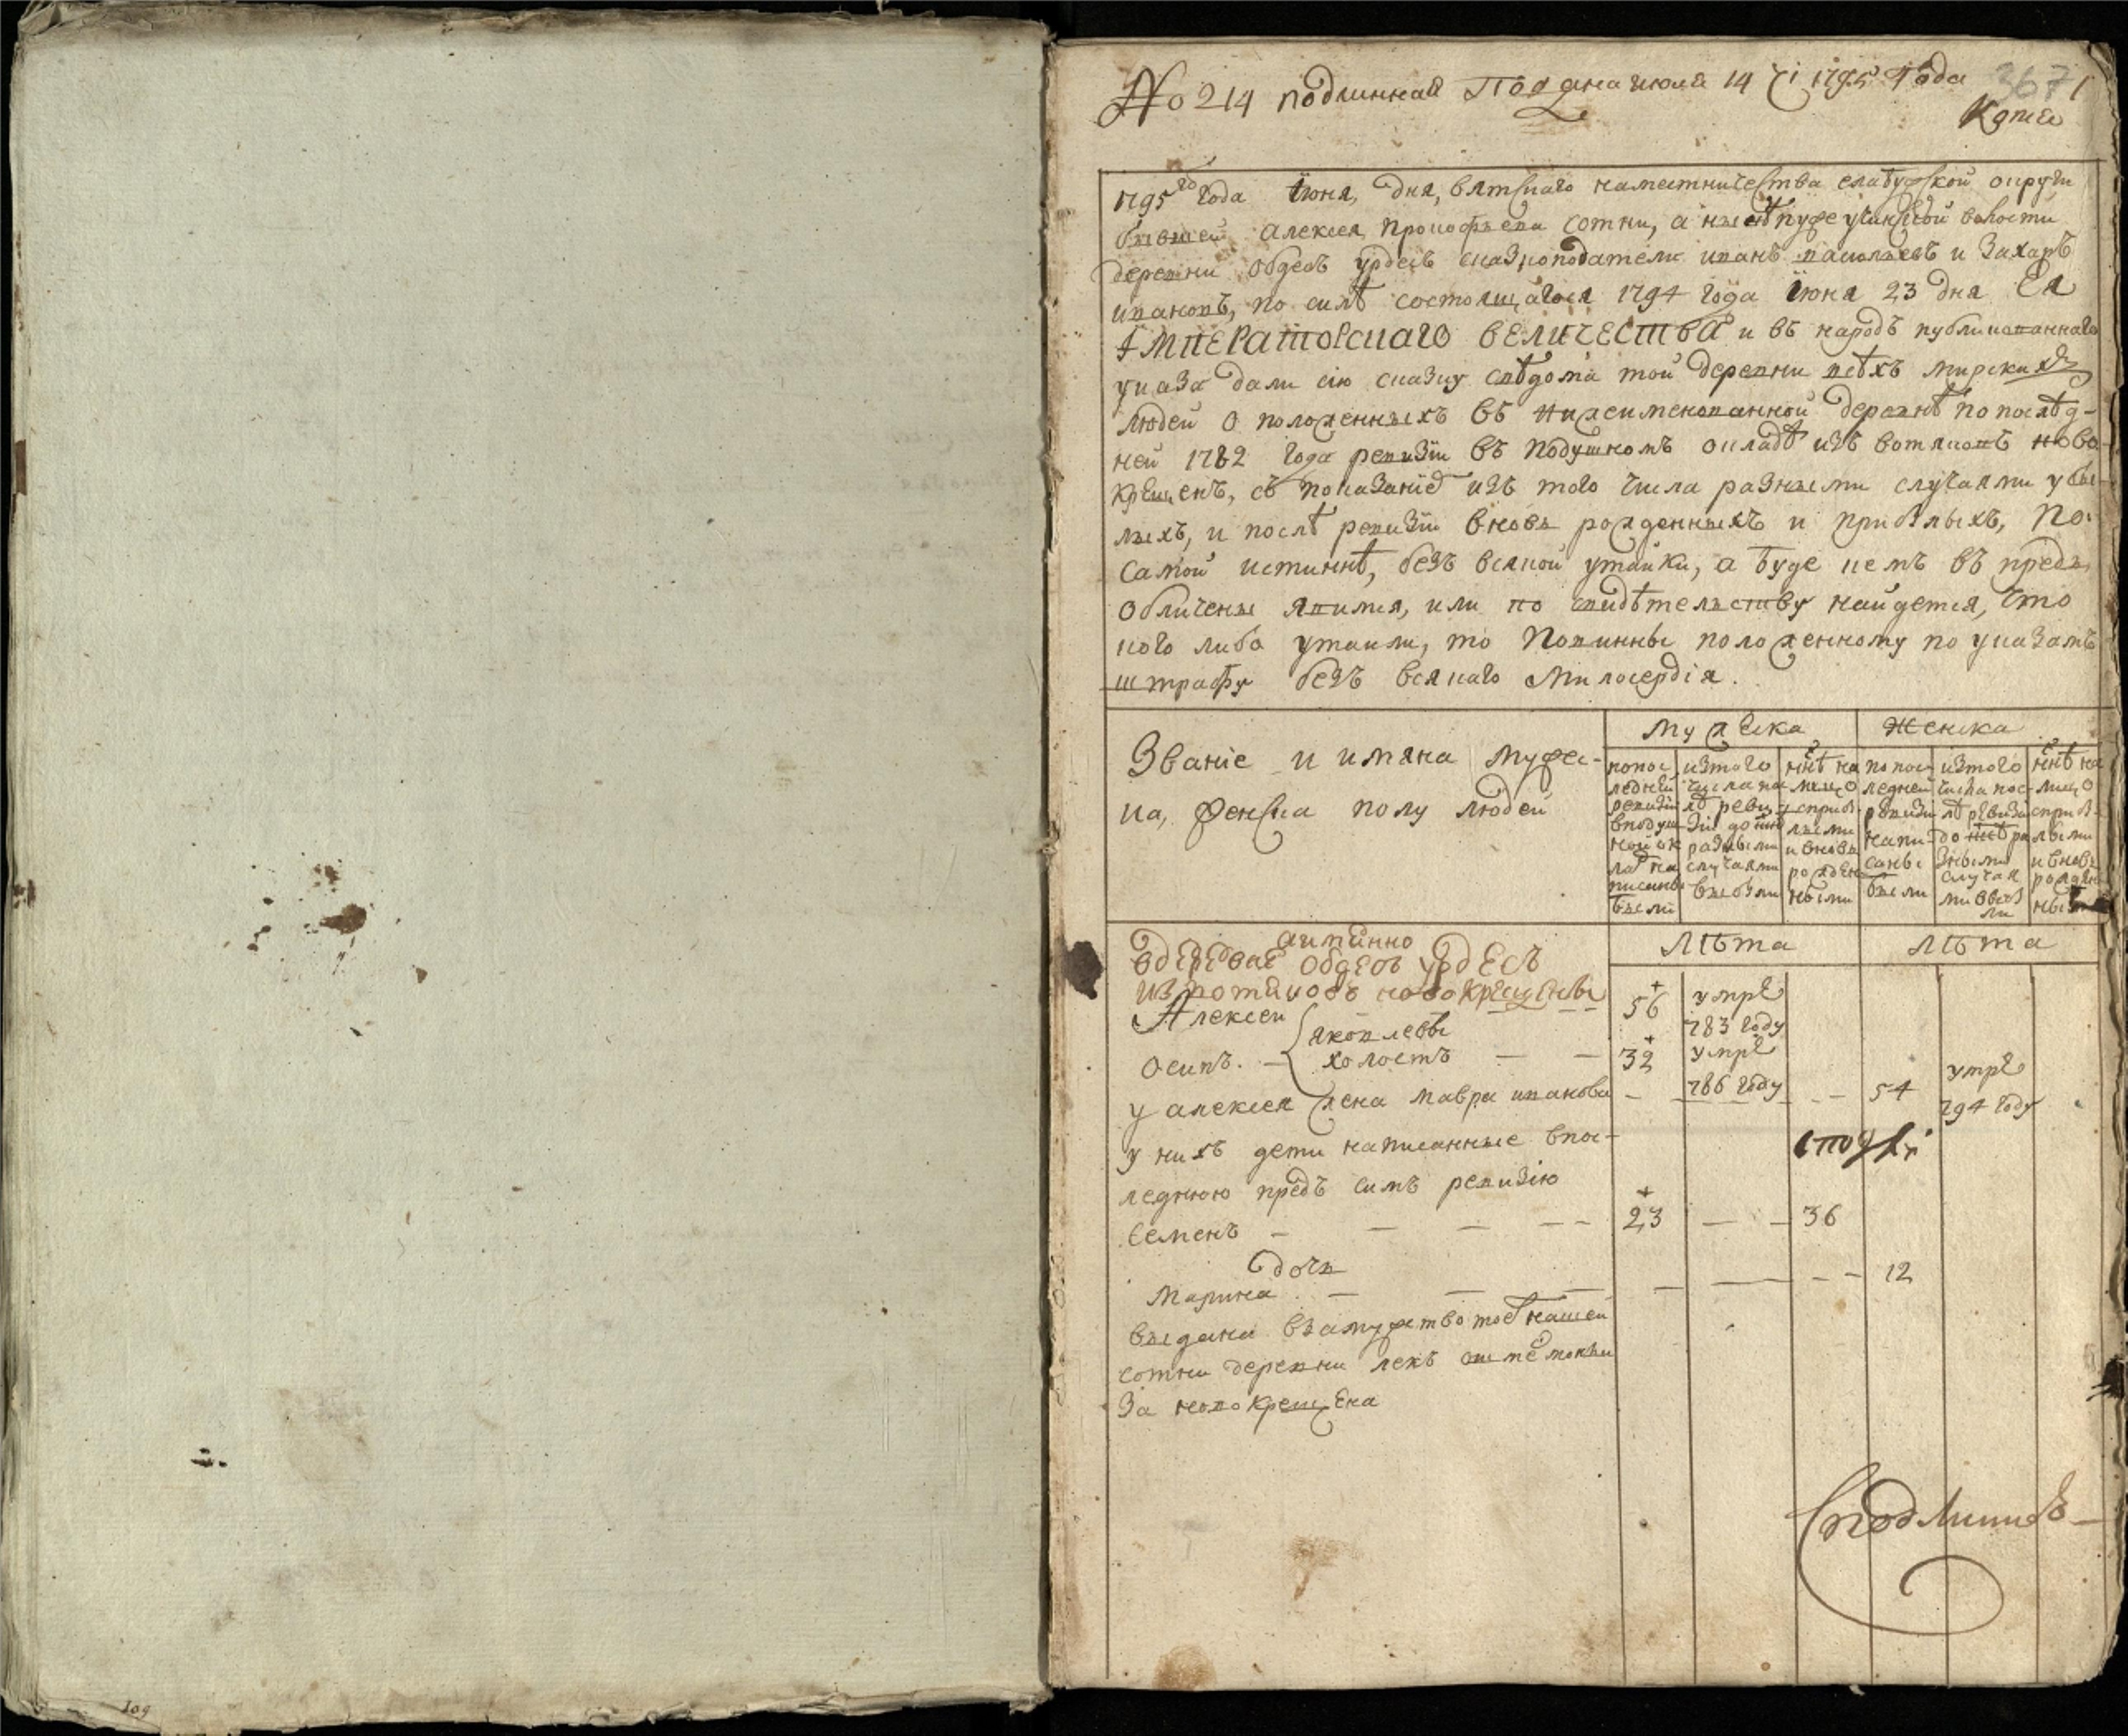 No 214 подлинная Подана июля 14 1795 Года 367 1
Копия
1795го Года Iюня, дня, вятскаго наместничества елабуской округи
бывшей алексея прокофьева сотни, а ныне волости
деревни Обдесъ урдесъ сказкоподатели иванъ и Захаръ
ивановъ, по силѣ состоящагося 1794 года Iюня 23 дня Ея
Iмператорскаго величества и въ народъ публикованнаго
указа дали сiю сказку свѣдома той деревни всѣхъ мирскихъ
людей о положенныхъ въ нижеименованной деревнѣ по послѣд-
ней 1782 года ревизiи въ подушномъ окладѣ изъ вотяковъ ново
крещенъ, съ показанiе изъ того числа разными случаями убы-
лыхъ, и послѣ ревизiи вновь рожденныхъ и прибылыхъ, по
самой истиннѣ, безъ всякой утайки, а буде чемъ въ предь
обличены явимся, или по свидѣтельству найдется, что
кого либо утаили, то повинны положенному по указамъ
штрафу безъ всякаго милосердiя.
мужеска женска
Званiе и имяна мужес-
ка, женска полу людей
попос
ледней
ревизiи
вподуш
ной ок
лад на
писаны
были
изтого
числа пос
лѣ реви
зiи до ннѣ
разными
случаями
выбыли
ннѣ на
лицо
сприб
лыми
и вновь
рожден
ными
по пос
ледней
ревизiи
напи-
саны
были
изтого
числа пос-
лѣ ревизiи
до ннѣ ра
зными
случая
ми выбы
ли
ннѣ на
лицо
сприб
лыми
и вновь
рожден
ными
аимянно
вдеревне Обдесъ урдесъ
изъ вотяковъ новокрещены
лѣта лѣта
Алексеи яковлевы 56 умре
783 году
Осипъ. холостъ 32 умре
786 году
у алексея жена мавра иванова 54 умре
794 году
у нихъ дети написанные впос-
леднюю предъ симъ ревизiю
Семенъ 23 36
дочь
Марина 12
выдана взамужство тое нашей
сотни деревни лекъ
за новокрещена
Сподлинной